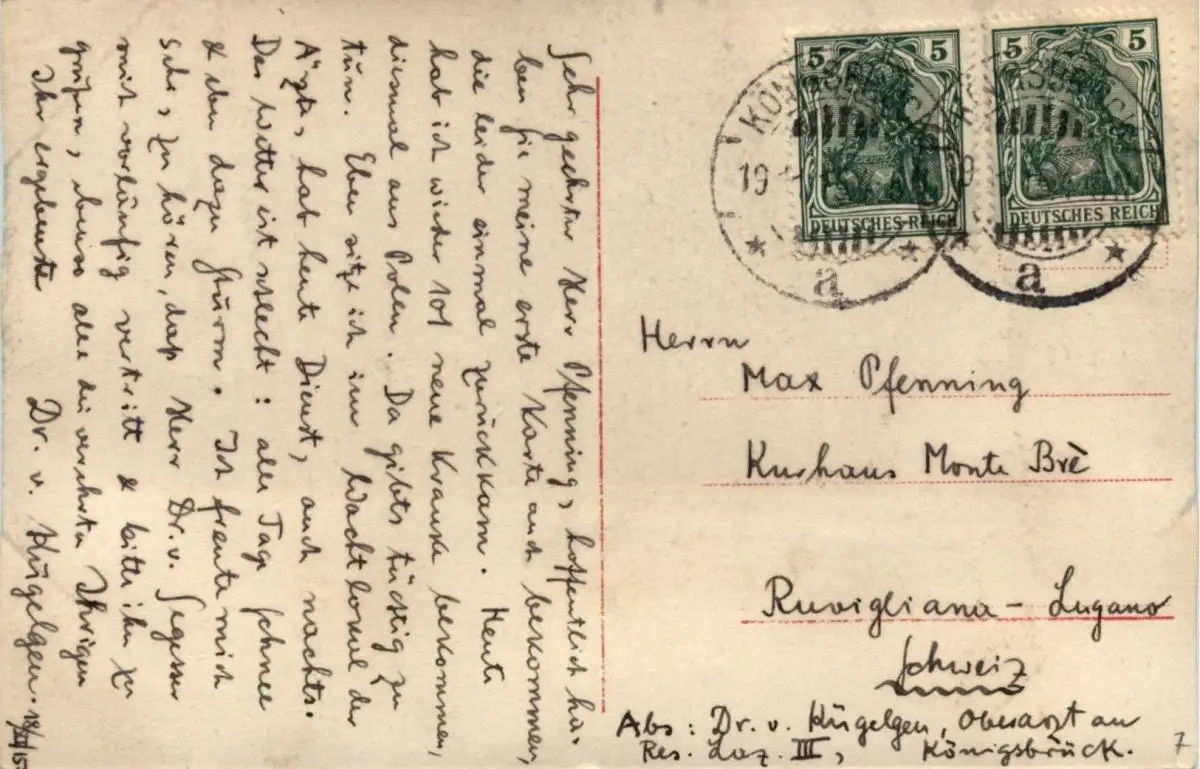 Sehr geehrter Herr Pfenning, hoffentlich ha-
ben Sie meine erste Karte auch bekommen,
die leider einmal zurückkam. Heute
hab ich wieder 101 neue Kranke bekommen,
diesmal aus Polen. Da gibts tüchtig zu
tun. Eben sitze ich im Wachtlokal der
Ärzte, hab heute Dienst, auch nachts.
Das Wetter ist schlecht: alle Tage Schnee
& eben dazu Sturm. Ich freute mich
sehr, zu hören, daß Herr Dr. v. Segesser
mich vorläufig vertritt & bitte ihn zu
grüßen, ebenso alle die verehrten Ihrigen
Ihr ergebenster
Dr. v. Kügelgen.
5 5
DEUTSCHES REICH
5 5
DEUTSCHES REICH
19
a
19
a
Herrn
Max Pfenning
Kurhaus Monte Brè
Ruvigliana - Lugano
Schweiz
Abs: Dr. v. Kügelgen, Oberarzt am
Res. Laz. III, Königsbrück.
7